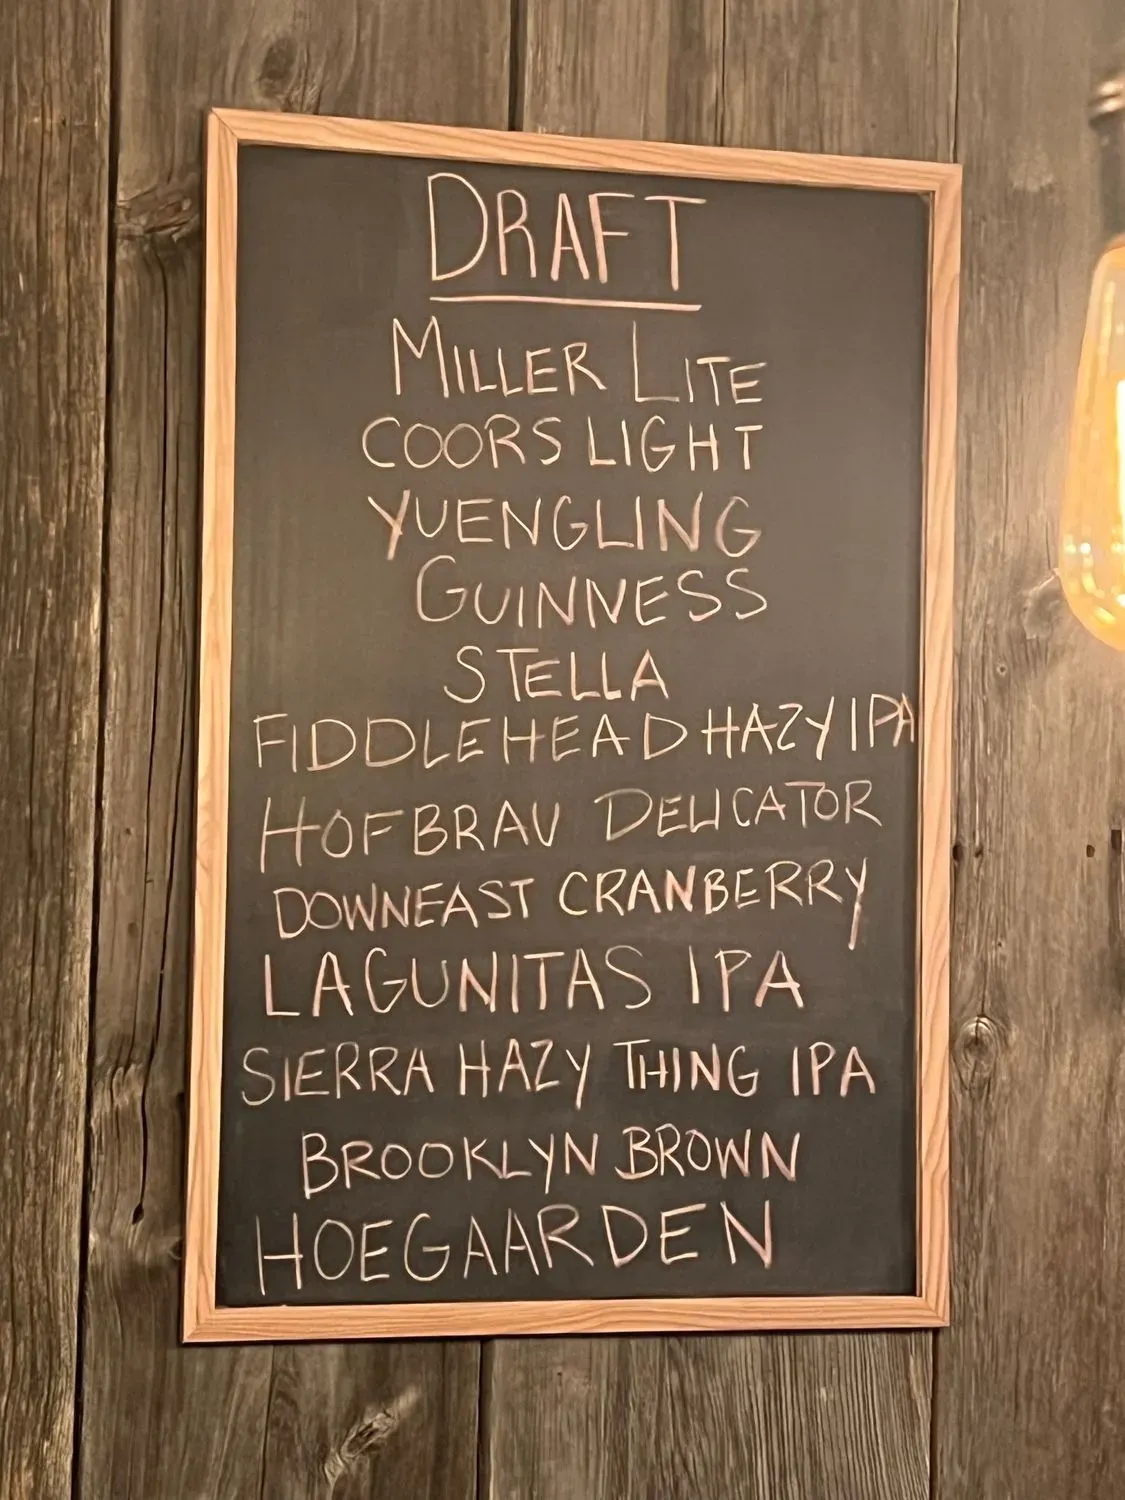 DRAFT
MILLER LITE
COORS LIGHT
YUENGLING
GUINNESS
STELLA
FIDDLEHEAD HAZY IPA
HOFBRAU DELICATOR
DOWNEAST CRANBERRY
LAGUNITAS IPA
SIERRA HAZY THING IPA
BROOKLYN BROWN
HOEGAARDEN